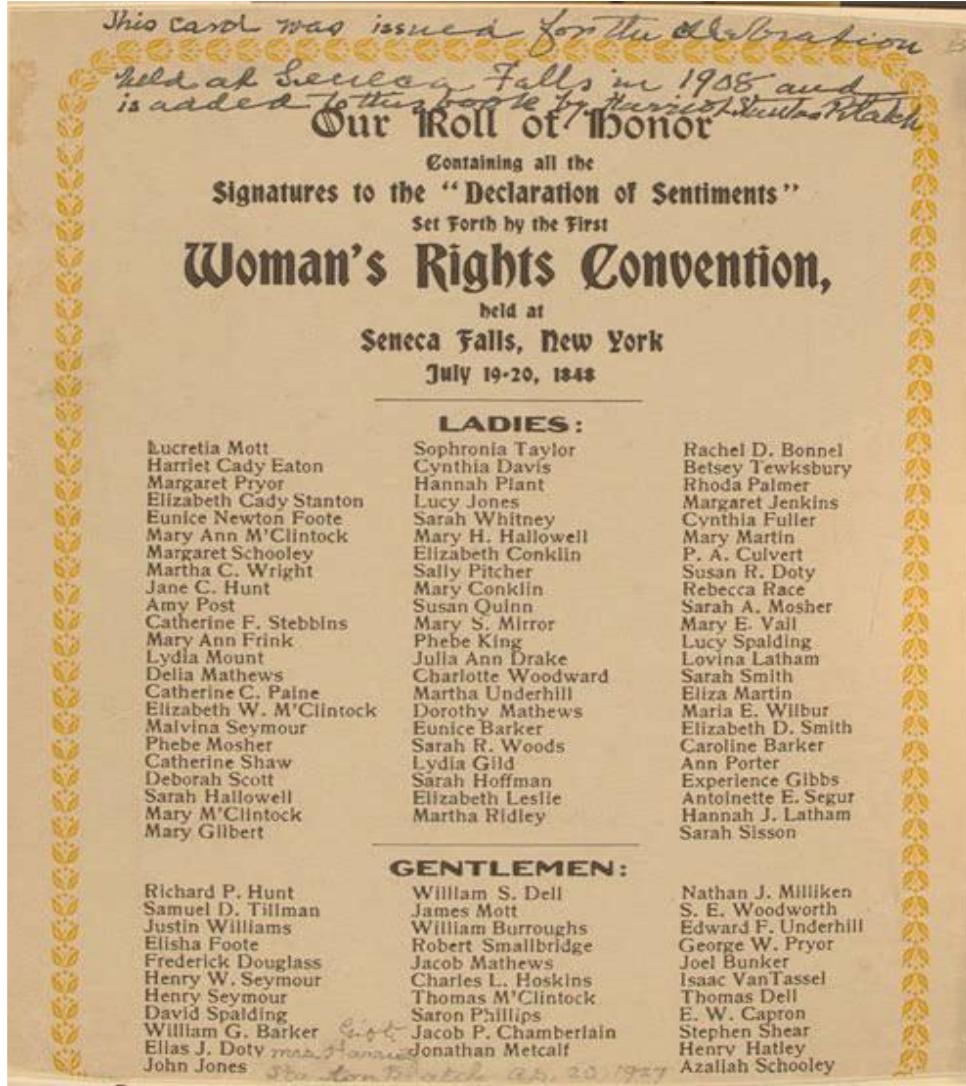 This card was issued for the celebration
held at Seneca Falls in 1908 and
is added to this book by Harriot Stanton Blatch
Our Roll of Honor
Containing all the
Signatures to the "Declaration of Sentiments"
Set Forth by the First
Woman's Rights Convention,
held at
Seneca Falls, New York
July 19-20, 1848
LADIES:
Lucretia Mott
Harriet Cady Eaton
Margaret Pryor
Elizabeth Cady Stanton
Eunice Newton Foote
Mary Ann M'Clintock
Margaret Schooley
Martha C. Wright
Jane C. Hunt
Amy Post
Catherine F. Stebbins
Mary Ann Frink
Lydia Mount
Delia Mathews
Catherine C. Paine
Elizabeth W. M'Clintock
Malvina Seymour
Phebe Mosher
Catherine Shaw
Deborah Scott
Sarah Hallowell
Mary M'Clintock
Mary Gilbert
Sophronia Taylor
Cynthia Davis
Hannah Plant
Lucy Jones
Sarah Whitney
Mary H. Hallowell
Elizabeth Conklin
Sally Pitcher
Mary Conklin
Susan Quinn
Mary S. Mirror
Phebe King
Julia Ann Drake
Charlotte Woodward
Martha Underhill
Dorothy Mathews
Eunice Barker
Sarah R. Woods
Lydia Gild
Sarah Hoffman
Elizabeth Leslie
Martha Ridley
Rachel D. Bonnel
Betsey Tewksbury
Rhoda Palmer
Margaret Jenkins
Cynthia Fuller
Mary Martin
P. A. Culvert
Susan R. Doty
Rebecca Race
Sarah A. Mosher
Mary E. Vail
Lucy Spalding
Lovina Latham
Sarah Smith
Eliza Martin
Maria E. Wilbur
Elizabeth D. Smith
Caroline Barker
Ann Porter
Experience Gibbs
Antoinette E. Segur
Hannah J. Latham
Sarah Sisson
GENTLEMEN:
Richard P. Hunt
Samuel D. Tillman
Justin Williams
Elisha Foote
Frederick Douglass
Henry W. Seymour
Henry Seymour
David Spalding
William G. Barker
Elias J. Doty
John Jones
William S. Dell
James Mott
William Burroughs
Robert Smallbridge
Jacob Mathews
Charles L. Hoskins
Thomas M'Clintock
Saron Phillips
Jacob P. Chamberlain
Jonathan Metcalf
Nathan J. Milliken
S. E. Woodworth
Edward F. Underhill
George W. Pryor
Joel Bunker
Isaac VanTassel
Thomas Dell
E. W. Capron
Stephen Shear
Henry Hatley
Azaliah Schooley
Gift
Mrs. Harriot
Stanton Blatch Ap. 20, 1927